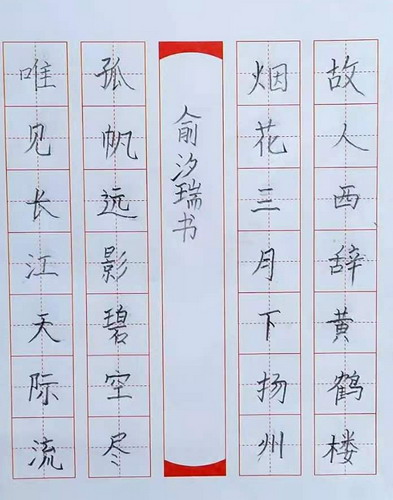 故人西辞黄鹤楼
烟花三月下扬州
俞汐瑞书
孤帆远影碧空尽
唯见长江天际流